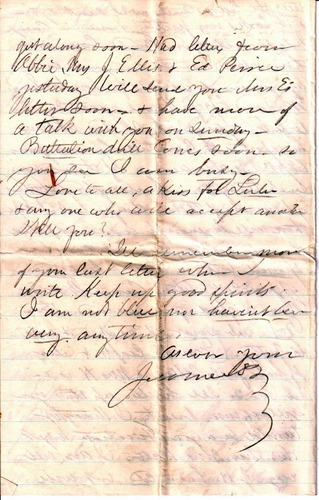 get along soon - Had letter from
Abbie Mrs J Ellis & Ed Peirce
yesterday Will send you Mrs E's
letter soon - & have more of
a talk with you on Sunday -
Battalion drill comes soon - so
you I am busy -
Love to all, a kiss for
& any one who will accept another
Will you?
I'll remember more
of your last letter when I
write Keep up good spirits.
I am not blue nor havent been
very any time
As ever your